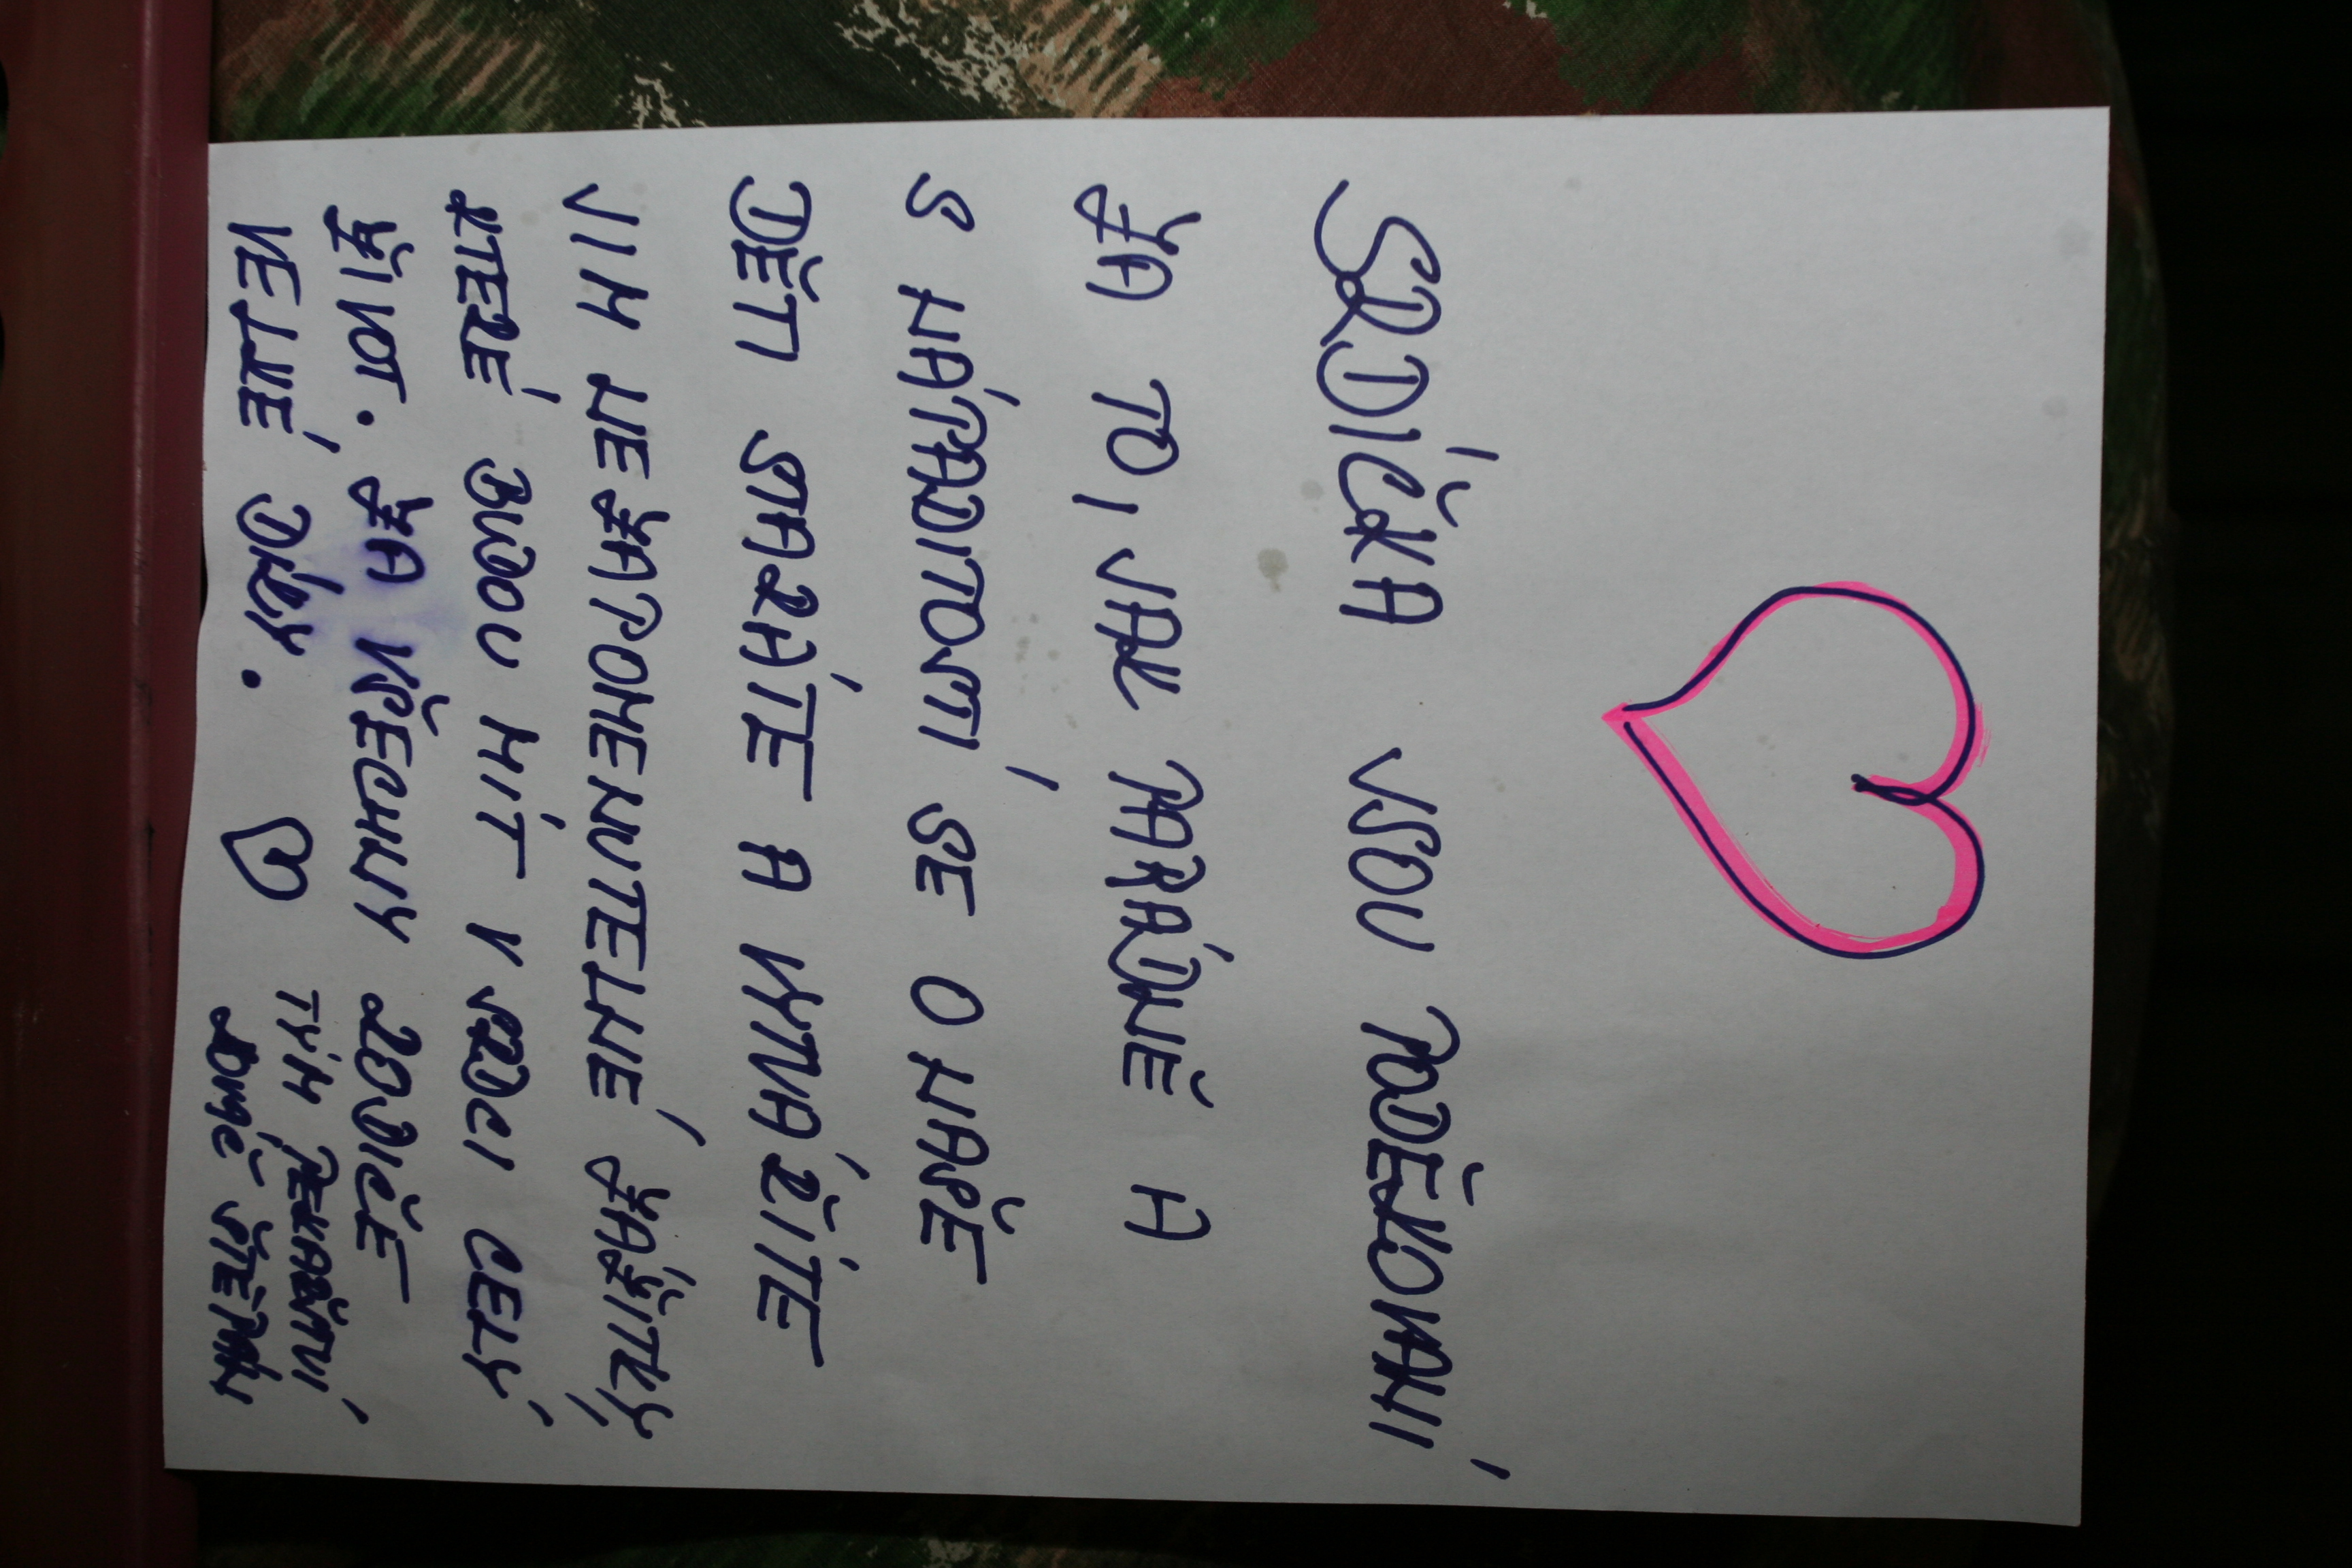 SRDÍČKA JSOU PODĚKOVÁNÍ
ZA TO, JAK PARÁDNĚ A
S NÁPADITOSTÍ SE O NAŠE
DĚTI STARÁTE A VYTVÁŘÍTE
JIM NEZAPOMENUTELNÉ ZÁŽITKY,
KTERÉ BUDOU MÍT V SRDCI CELÝ
ŽIVOT. ZA VŠECHNY RODIČE
VELKÉ DÍKY. ♡
TÝM PEKAŘSTVÍ